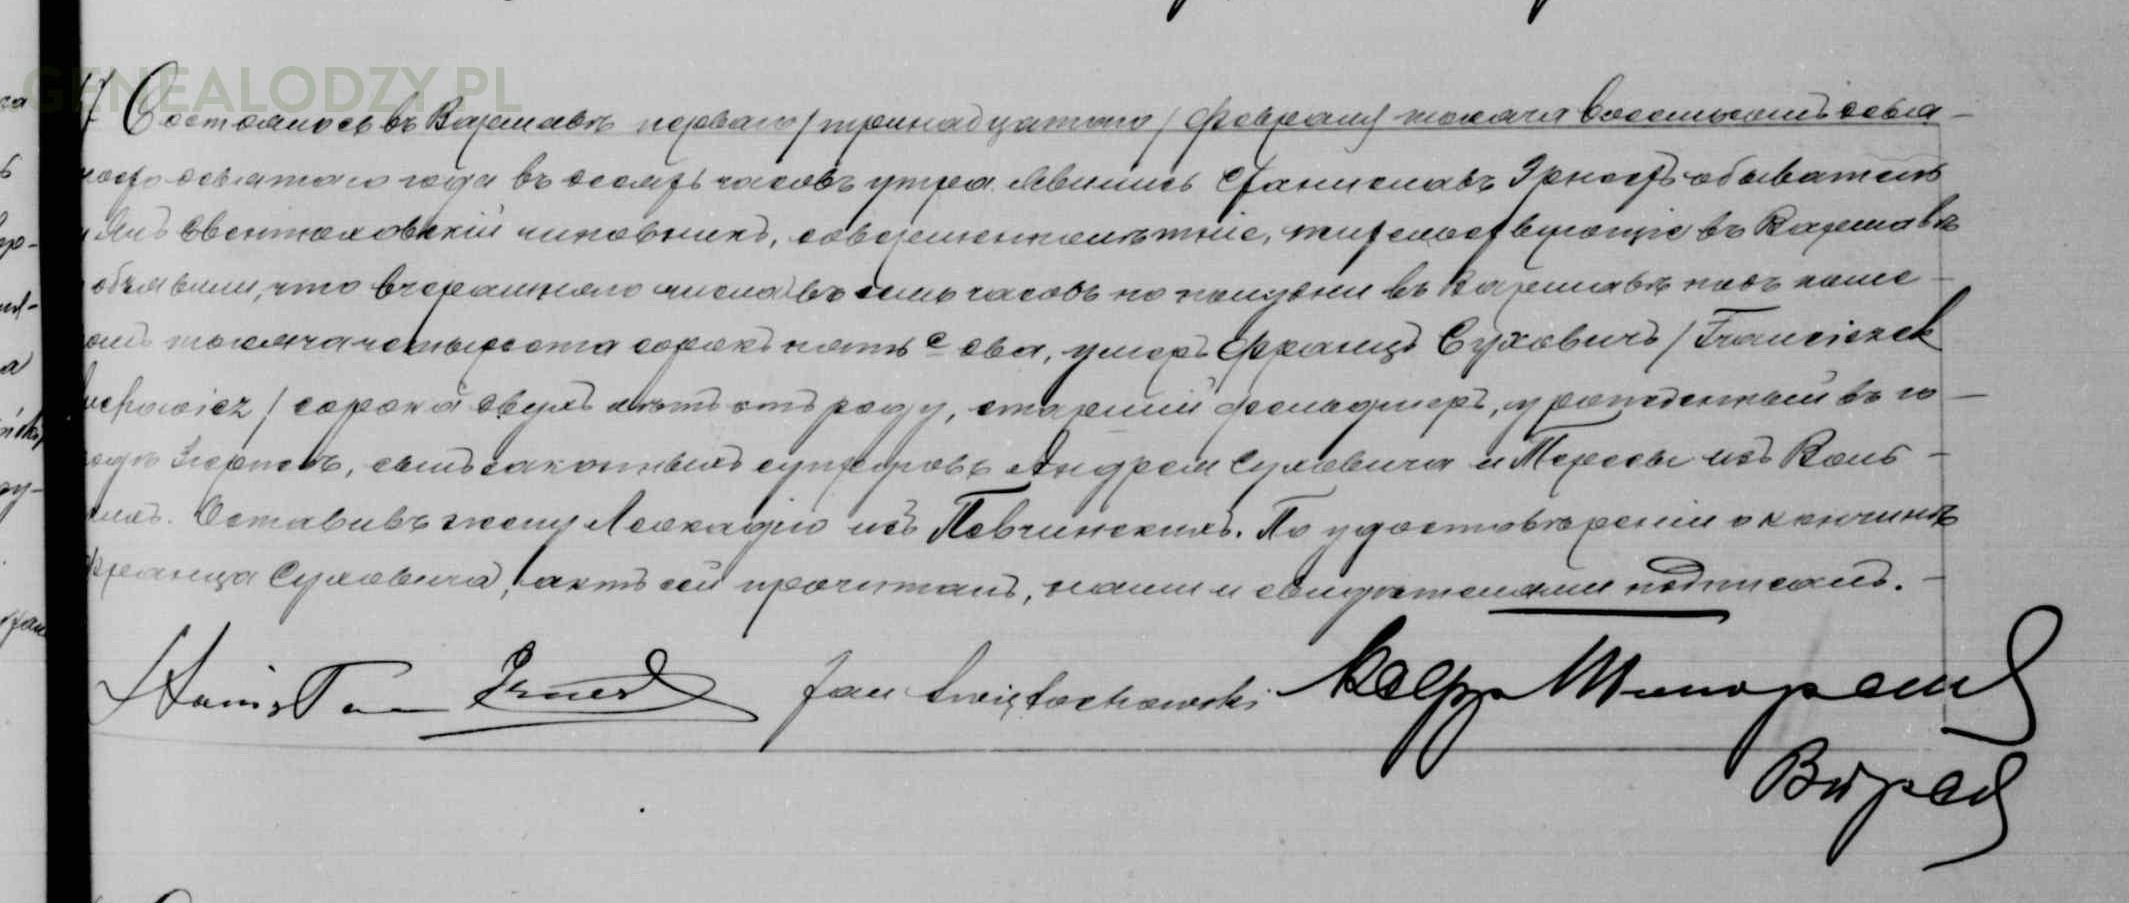 GENEALODZY.PL
Состоялось въ Варшавѣ перваго / тринадцатаго / Февраля тысяча восемьсотъ девя-
носто девятаго года въ десять часовъ утра. Явились Станиславъ Эрнестъ обыватель
и Янъ Свентоховскій чиновникъ, совершеннолѣтніе, жительствующіе въ Варшавѣ
объявили, что вчерашняго числа въ семь часовъ по полудни въ Варшавѣ подъ номе-
омъ тысяча четыреста сорокъ пять с два, умеръ Францъ Суховичъ / Franciszek
uchowicz / сорока двухъ лѣтъ отъ роду, старшій фельдшеръ, урожденный въ го-
родѣ сынъ законныхъ супруговъ Андрея Суховича и Тересы изъ
Оставивъ жену Леокадію изъ Певчинскихъ. По удостовѣреніи о кончинѣ
Франца Суховича, актъ сей прочитанъ, нами и свидѣтелями подписанъ.
Stanisław Ernest Jan Świętochowski